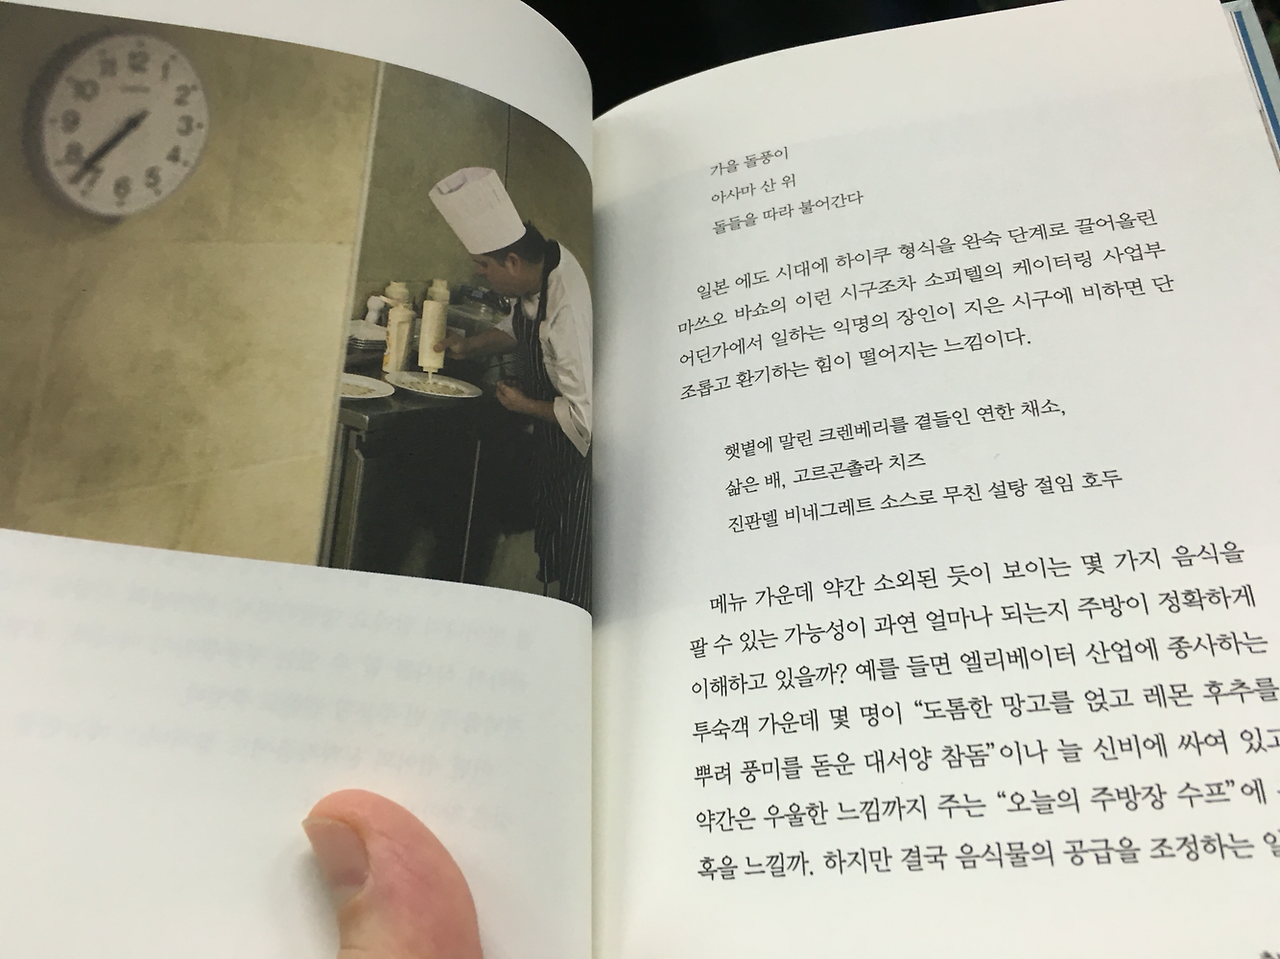 12
1
2
3
4
5
6
7
8
9
10
11
가을 돌풍이
아사마 산 위
돌들을 따라 불어간다
일본 에도 시대에 하이쿠 형식을 완숙 단계로 끌어올린
마쓰오 바쇼의 이런 시구조차 소피텔의 케이터링 사업부
어딘가에서 일하는 익명의 장인이 지은 시구에 비하면 단
조롭고 환기하는 힘이 떨어지는 느낌이다.
햇볕에 말린 크렌베리를 곁들인 연한 채소,
삶은 배, 고르곤촐라 치즈
진판델 비네그레트 소스로 무친 설탕 절임 호두
메뉴 가운데 약간 소외된 듯이 보이는 몇 가지 음식을
팔 수 있는 가능성이 과연 얼마나 되는지 주방이 정확하게
이해하고 있을까? 예를 들면 엘리베이터 산업에 종사하는
투숙객 가운데 몇 명이 “도톰한 망고를 얹고 레몬 후추를
뿌려 풍미를 돋운 대서양 참돔”이나 늘 신비에 싸여 있고
약간은 우울한 느낌까지 주는 “오늘의 주방장 수프”에
혹을 느낄까. 하지만 결국 음식물의 공급을 조정하는